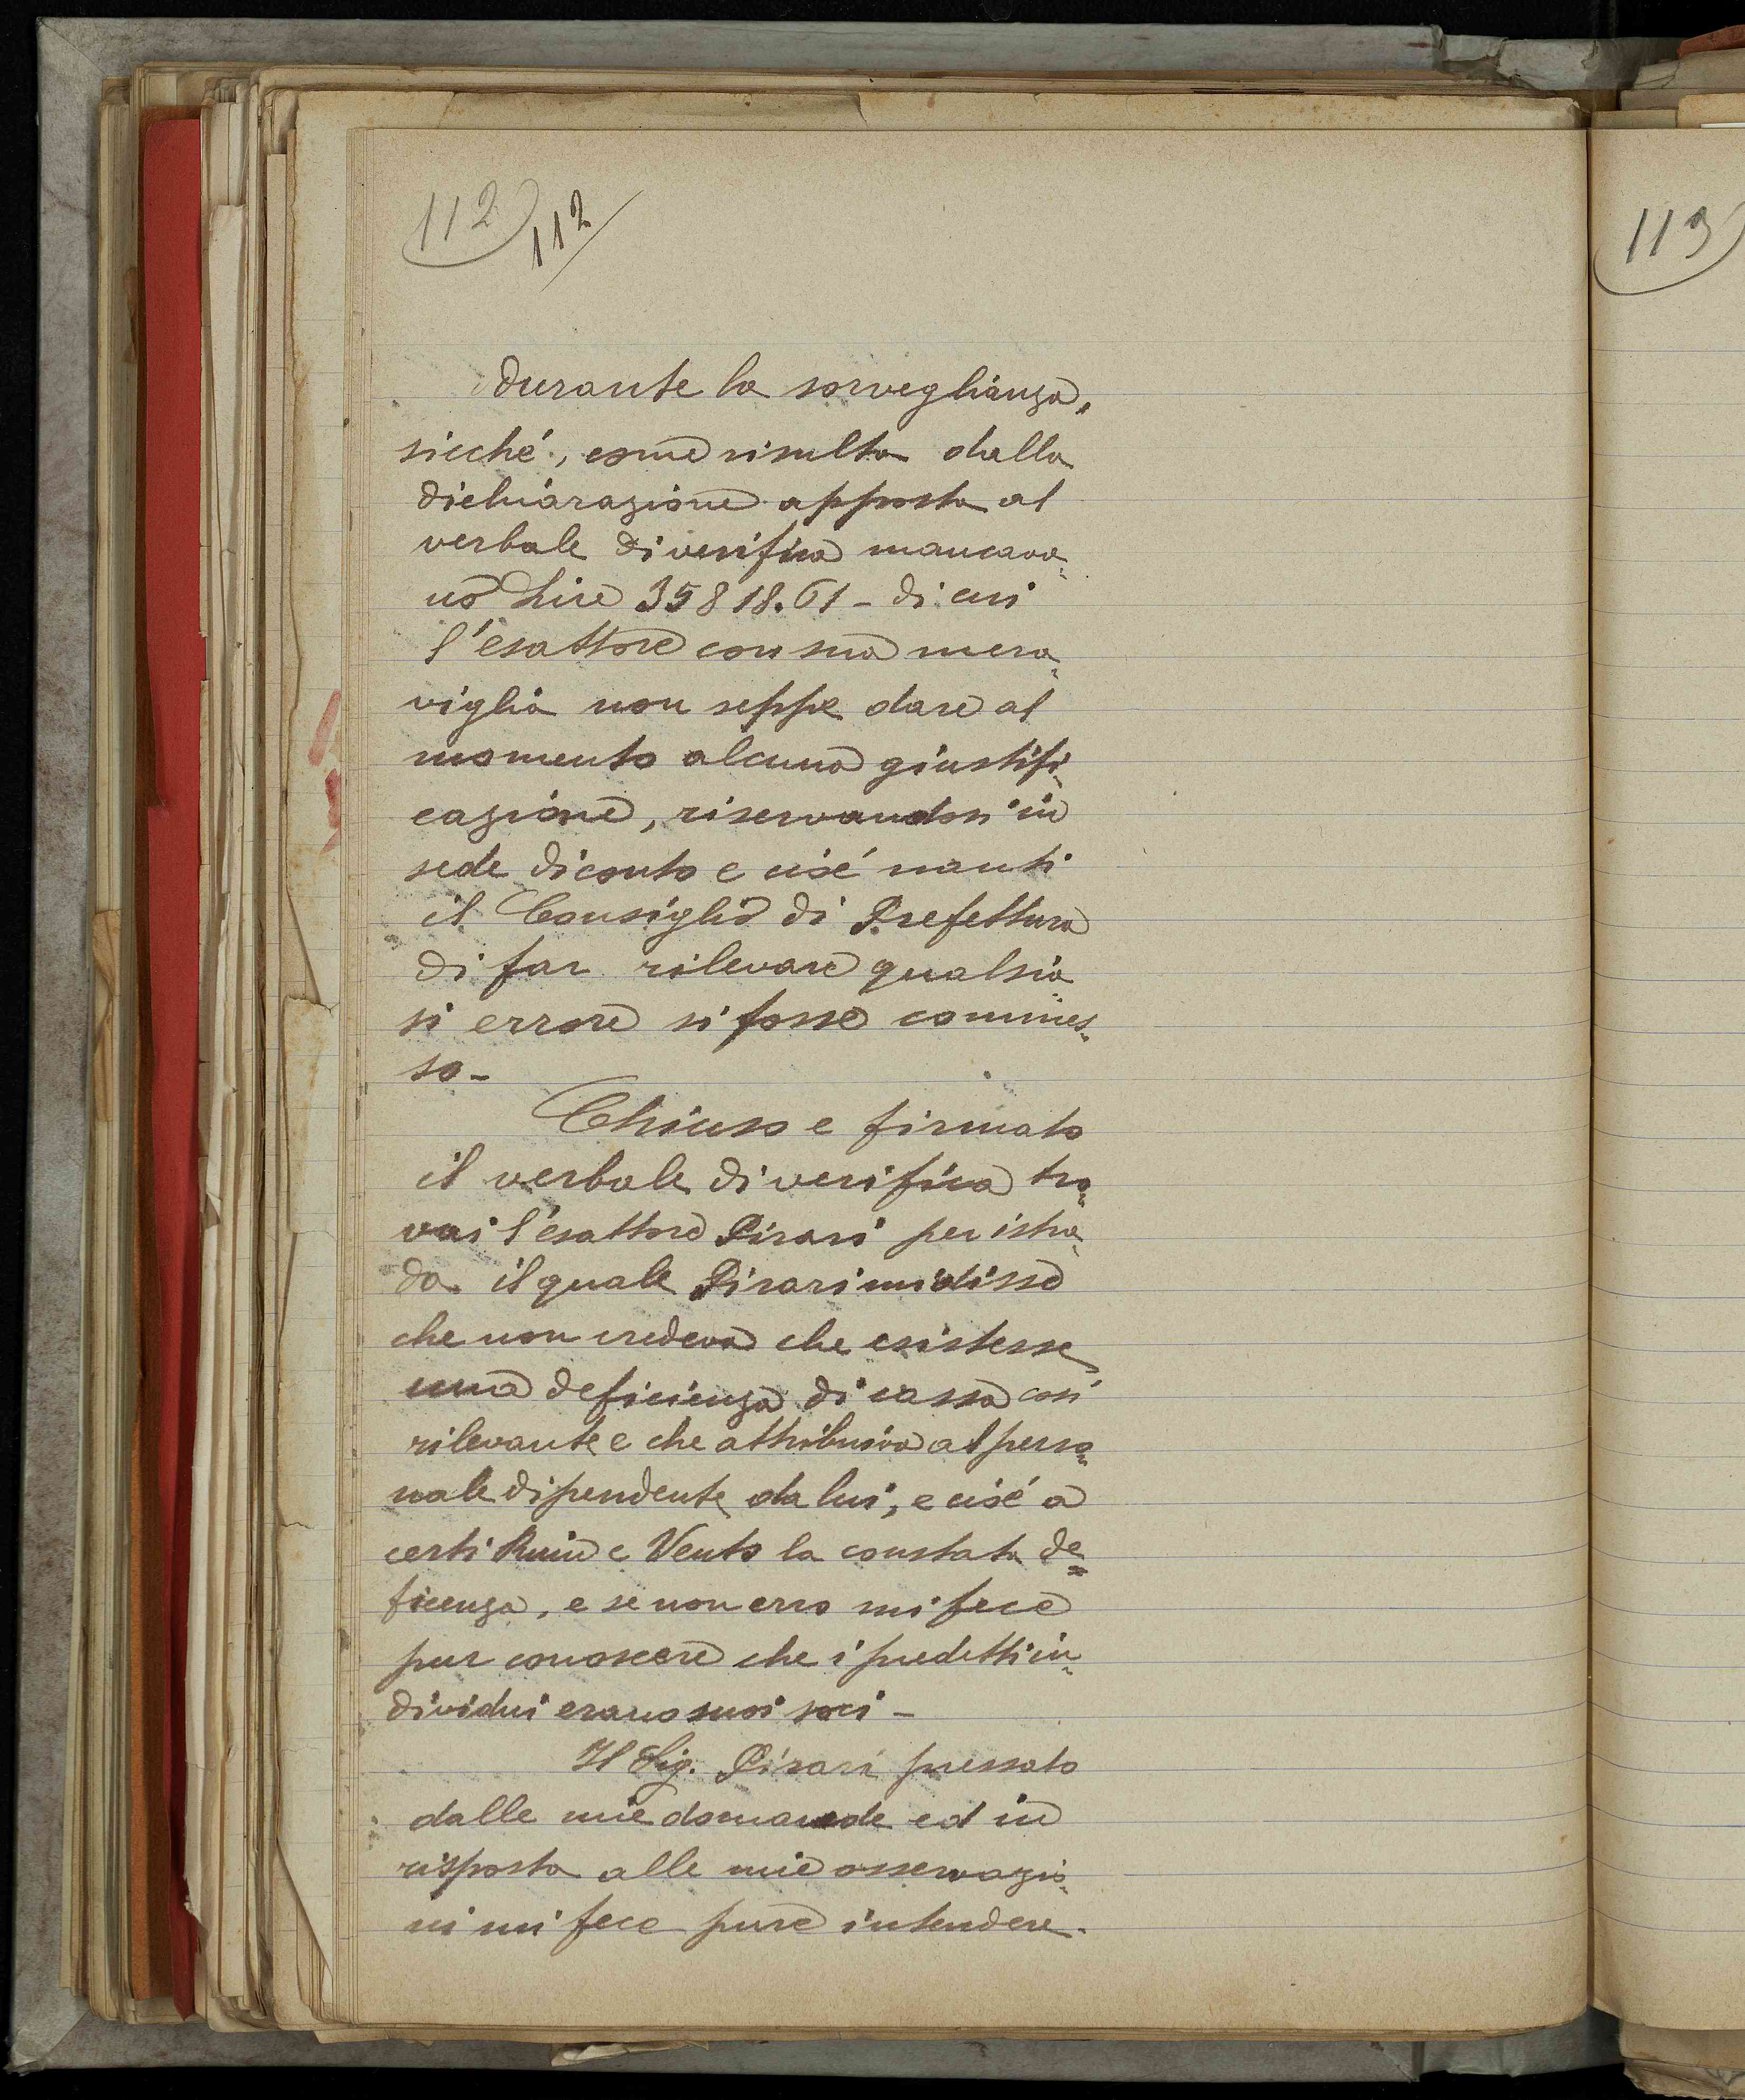 112 112
113
durante la sorveglianza,
sicché, come risulta dalla
dichiarazione apposta al
verbale di verifica mancava-
no Lire 35818.61 - di cui
l'esattore con sua mera-
viglia non seppe dare al
momento alcuna giustifi-
cazione, riservandosi in
sede di conto e cioé nanti
il Consiglio di Prefettura
di far rilevare qualsia-
si errore si fosse commes-
so -
Chiuso e firmato
il verbale di verifica tro-
vai l'esattore Pirari per istra-
da il quale Pirari mi disse
che non credeva che esistesse
una deficienza di cassa così
rilevante e che attribuiva al perso-
nale dipendente da lui, e cioé a
certi e Vento la constata de=
ficenza, e se non erro mi fece
pur conoscere che i predetti in-
dividui erano suoi soci -
Il Sig. Pirari pressato
dalle mie domande ed in
risposta alle mie osservazio-
ni mi fece pure intendere.